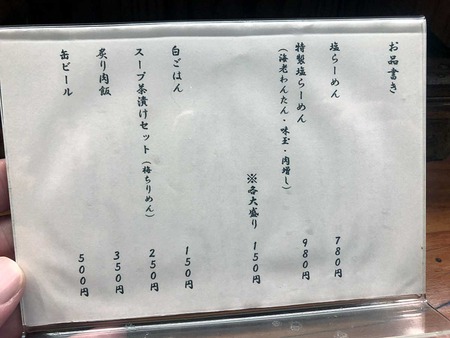 お品書き
塩らーめん 780円
特製塩らーめん 980円
(海老わんたん・味玉・肉増し)
※各大盛り 150円
白ごはん 150円
スープ茶漬けセット(梅ちりめん) 250円
炙り肉飯 350円
缶ビール 500円